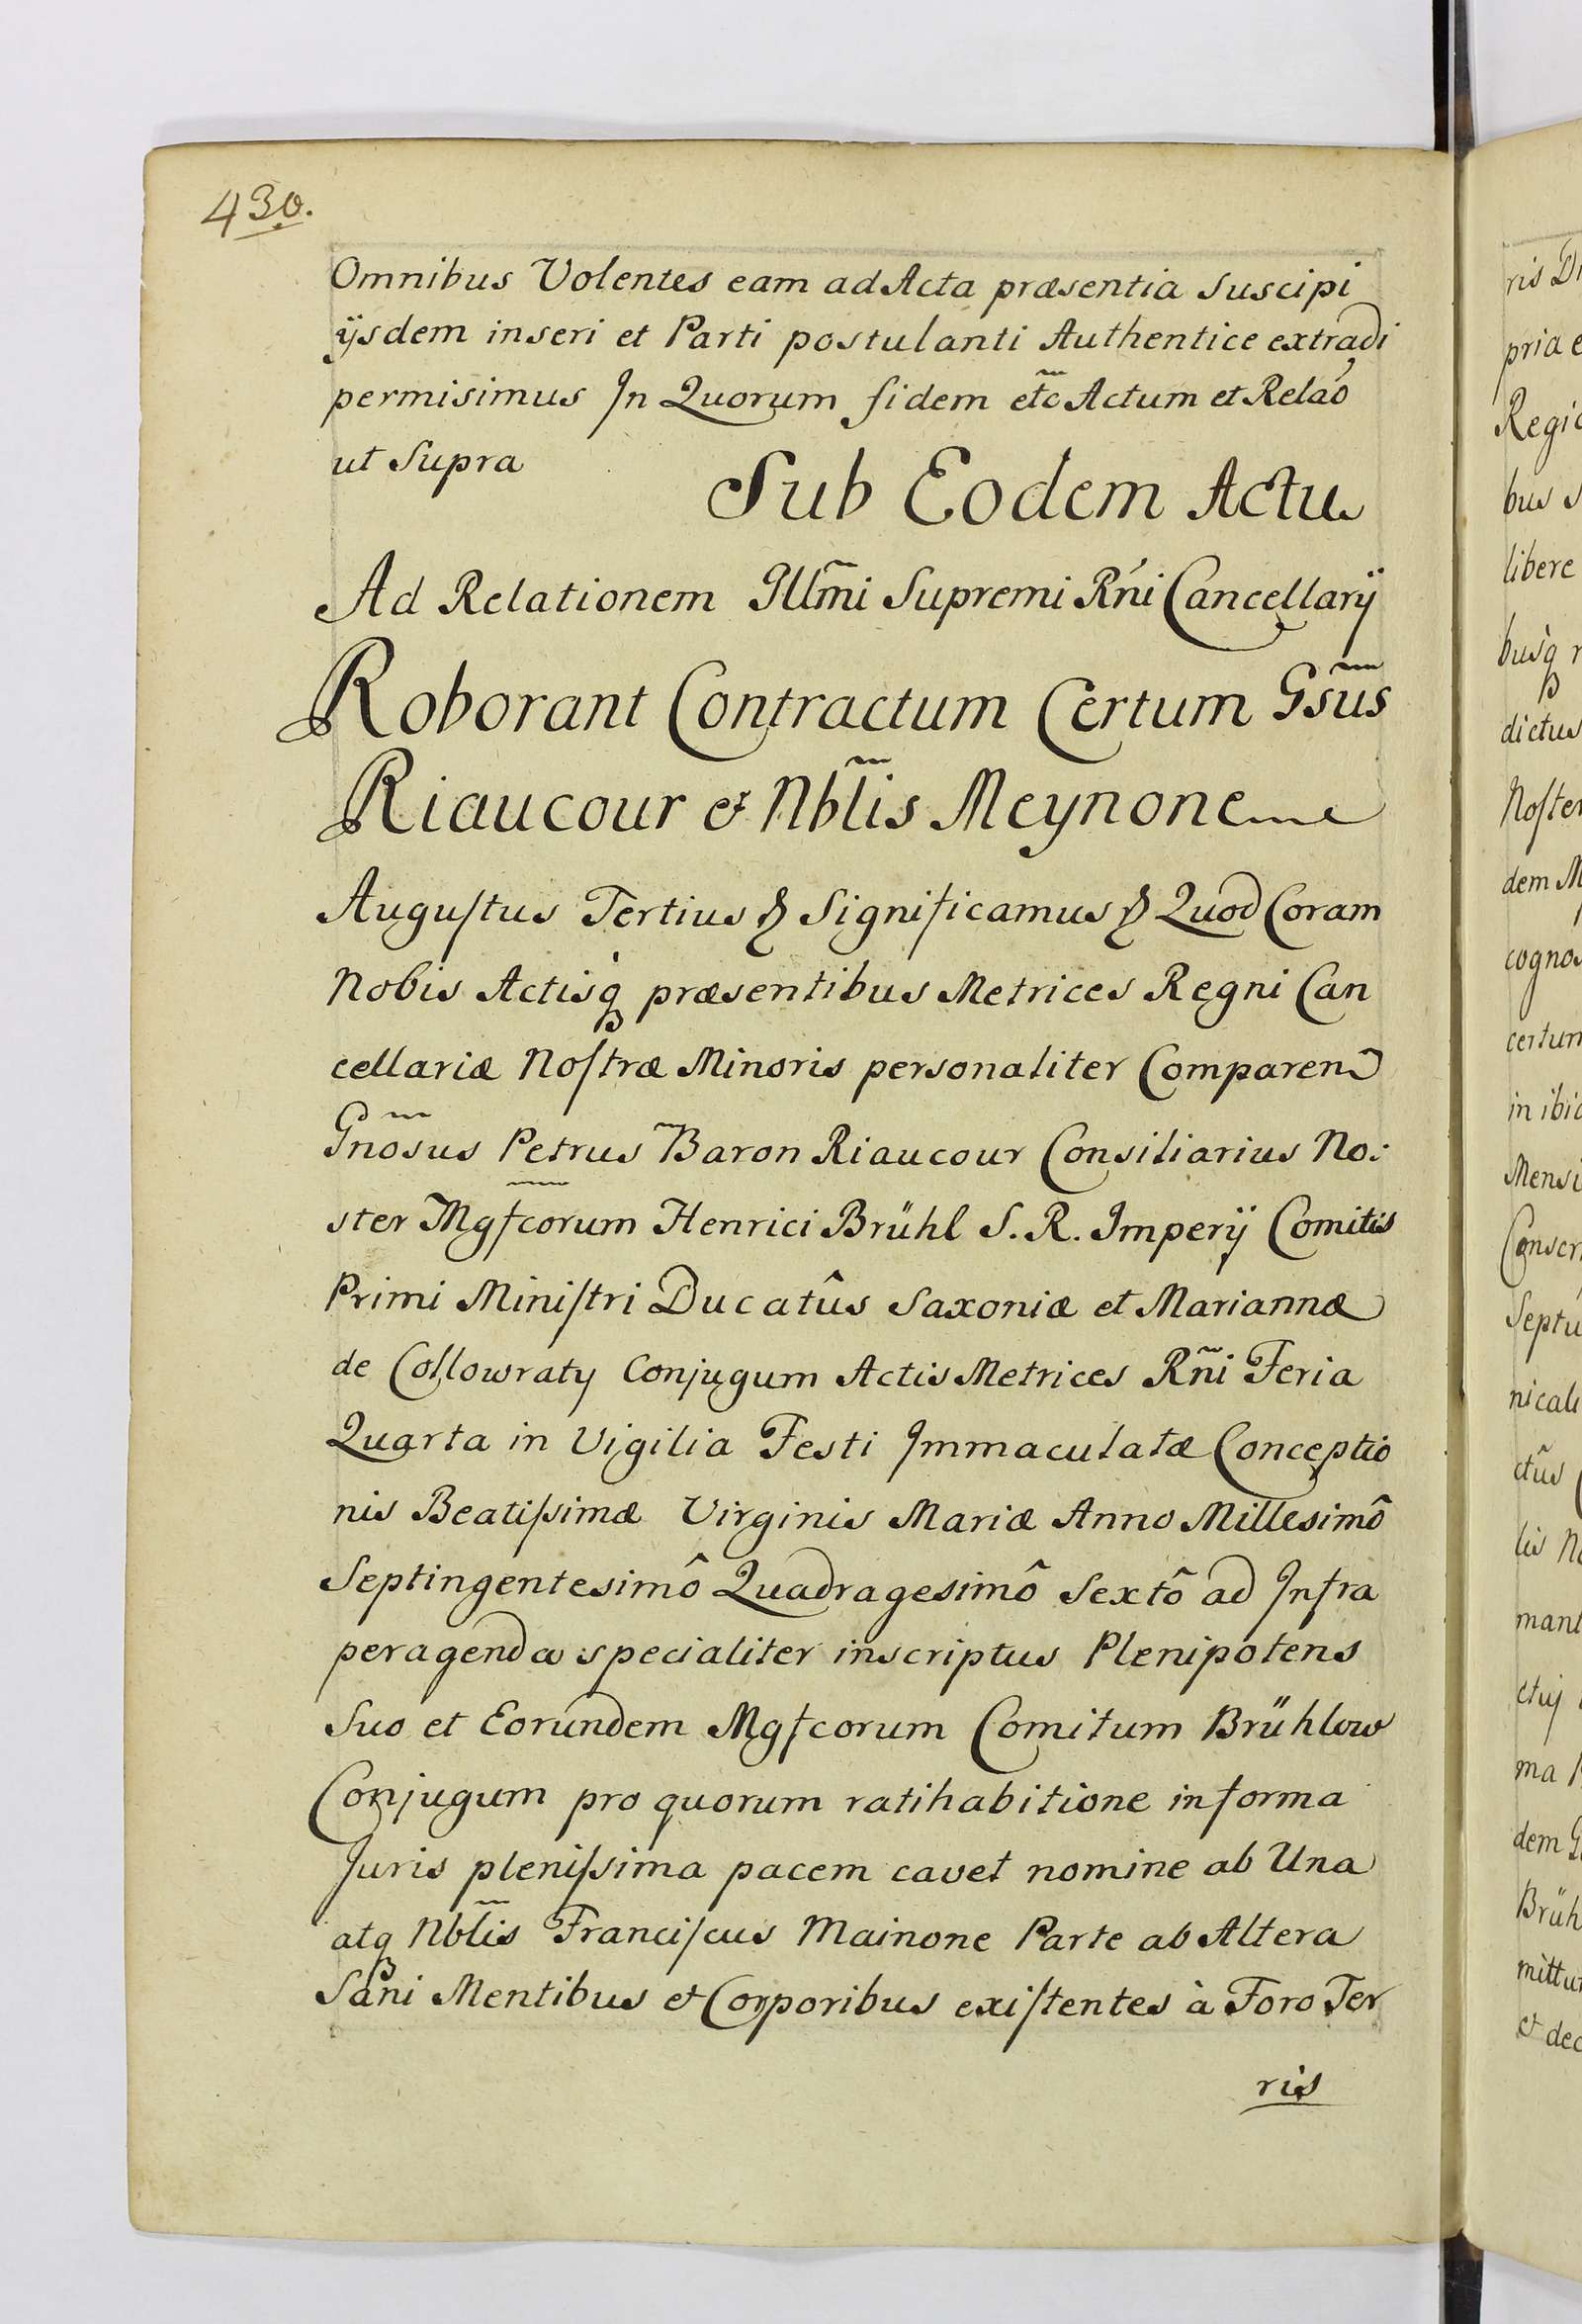 430.
Omnibus Volentes eam ad Acta præsentia suscipi
ijsdem inseri et Parti postulanti Authentice extradi
permisimus In Quorum fidem etc̃ Actum et Relaõ
ut Supra
Sub Eodem Actu
Ad Relationem Illm̃i Supremi Rńi Cancellarij
Roborant Contractum Certum Gsũs
Riaucour et Nbl̃is Meynone
Augustus Tertius & Significamus & Quod Coram
Nobis Actisq́ præsentibus Metrices Regni Can
cellariæ Nostræ Minoris personaliter Comparen̄
Gñosus Petrus Baron Riaucour Consiliarius No:
ster Mgfcorum Henrici Brühl S. R. Imperij Comitis
Primi Ministri Ducatûs Saxoniæ et Mariannæ
de Collowraty Conjugum Actis Metrices Rñi Feria
Quarta in Vigilia Festi Immaculatæ Conceptio
nis Beatissimæ Virginis Mariæ Anno Millesimô
Septingentesimô Quadragesimô Sextô ad Infra
peragenda specialiter inscriptus Plenipotens
Suo et Eorundem Mgfcorum Comitum Brühlow
Conjugum pro quorum ratihabitione in forma
Juris plenissima pacem cavet nomine ab Una
atq Nbl̃is Franciscus Mainone Parte ab Altera
Sani Mentibus et Corporibus existentes à Foro Ter
ris
pria e
bus s
libere
busq r
dictus
Noster
dem M
cognos
certum
in ibid
Mensi
Conscr
Septu
nicali
ctũs
lis No
mani
ctuj
ma
dem G
Brüh
mittu
et dec